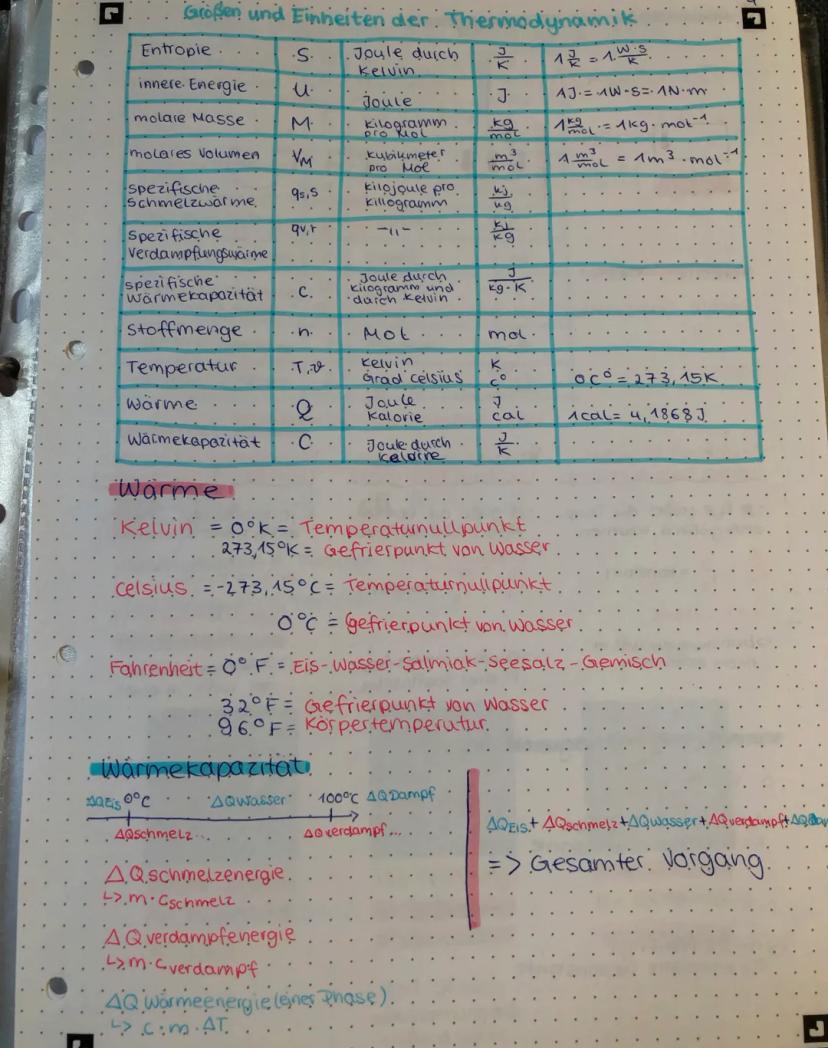 Größen und Einheiten der Thermodynamik
Entropie S Joule durch Kelvin J/K 1 J/K = 1 W·s/K
innere Energie U Joule J 1J = 1W·s = 1N·m
molare Masse M Kilogramm pro Mol kg/mol 1 kg/mol = 1kg·mol⁻¹
molares Volumen V_M Kubikmeter pro Mol m³/mol 1 m³/mol = 1m³·mol⁻¹
spezifische Schmelzwärme qs,s Kilojoule pro Killogramm kj/kg
spezifische Verdampfungswärme qv,r -"- kj/kg
spezifische Wärmekapazität c Joule durch Kilogramm und durch Kelvin J/kg·K
Stoffmenge n Mol mol
Temperatur T,ϑ Kelvin K
Grad Celsius C° 0C° = 273,15K
Wärme Q Joule J
Kalorie cal 1cal = 4,1868J
Wärmekapazität C Joule durch J/K
Wärme
Kelvin = 0°K = Temperaturnullpunkt
273,15°K = Gefrierpunkt von Wasser
Celsius = -273,15°C = Temperaturnullpunkt
0°C = Gefrierpunkt von Wasser
Fahrenheit = 0°F = Eis-Wasser-Salmiak-Seesalz-Gemisch
32°F = Gefrierpunkt von Wasser
96°F = Körpertemperatur
Wärmekapazität
ΔQEis 0°C ΔQWasser 100°C ΔQDampf
ΔQschmelz... ΔQverdampf...
ΔQEis + ΔQschmelz + ΔQWasser + ΔQverdampf + ΔQ
=> Gesamter Vorgang
ΔQ schmelzenergie
↳ m·c schmelz
ΔQ verdampfenergie
↳ m·c verdampf
ΔQ Wärmeenergie (einer Phase)
↳ c·m·ΔT